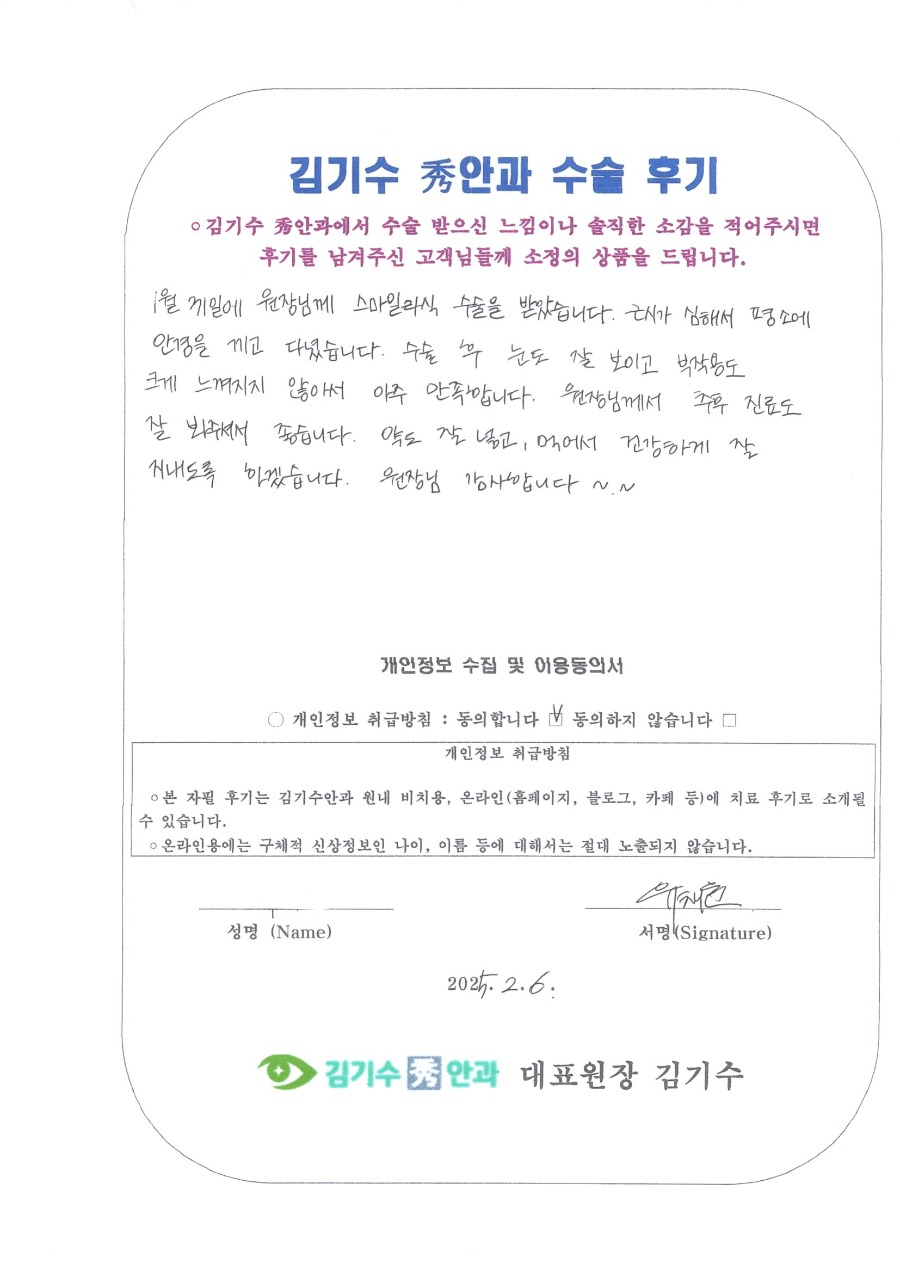 김기수 秀안과 수술 후기
○김기수 秀안과에서 수술 받으신 느낌이나 솔직한 소감을 적어주시면
후기를 남겨주신 고객님들께 소정의 상품을 드립니다.
1월 끼일에 원장님께 스마일라식 수술을 받았습니다. 근시가 심해서 평소에
안경을 끼고 다녔습니다. 수술 후 눈도 잘 보이고 부작용도
크게 느껴지지 않아서 아주 만족합니다. 원장님께서 추후 진료도
잘 봐주셔서 좋습니다. 약도 잘 넣고, 먹어서 건강하게 잘
지내도록 하겠습니다. 원장님 감사합니다 ~.~
개인정보 수집 및 이용동의서
○ 개인정보 취급방침 : 동의합니다 ☑ 동의하지 않습니다 □
개인정보 취급방침
○본 자필 후기는 김기수안과 원내 비치용, 온라인(홈페이지, 블로그, 카페 등)에 치료 후기로 소개될
수 있습니다.
○온라인용에는 구체적 신상정보인 나이, 이름 등에 대해서는 절대 노출되지 않습니다.
성명 (Name) 서명(Signature)
2025. 2. 6.
김기수 秀 안과 대표원장 김기수